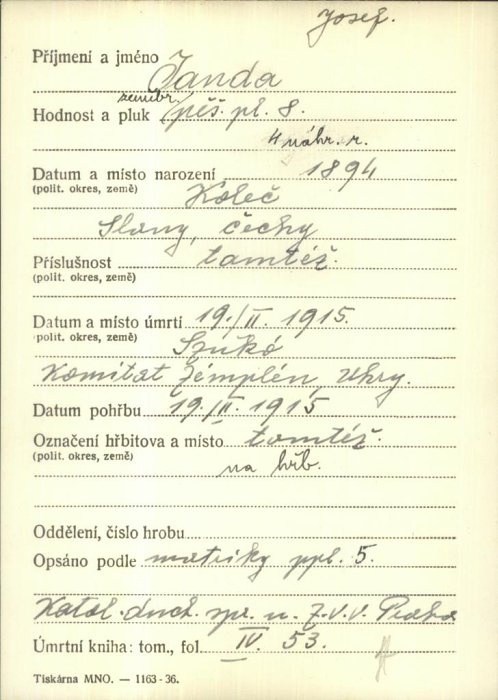 Josef.
Příjmení a jméno Janda
zeměbr.
Hodnost a pluk pěš. pl. 8.
4 náhr. r.
Datum a místo narození 1894
(polit. okres, země) Koleč
Slaný, Čechy
Příslušnost tamtéž.
(polit. okres, země)
Datum a místo úmrtí 19./II. 1915.
(polit. okres, země) Szukó
Komitát Zémplén, Uhry.
Datum pohřbu 19./II. 1915
Označení hřbitova a místo tamtéž.
(polit. okres, země) na hřb.
Oddělení, číslo hrobu
Opsáno podle matriky ppl. 5.
Katol. duch. spr. u Z.V.V. Praha
Úmrtní kniha: tom., fol. IV. 53.
Tiskárna MNO. — 1163-36.